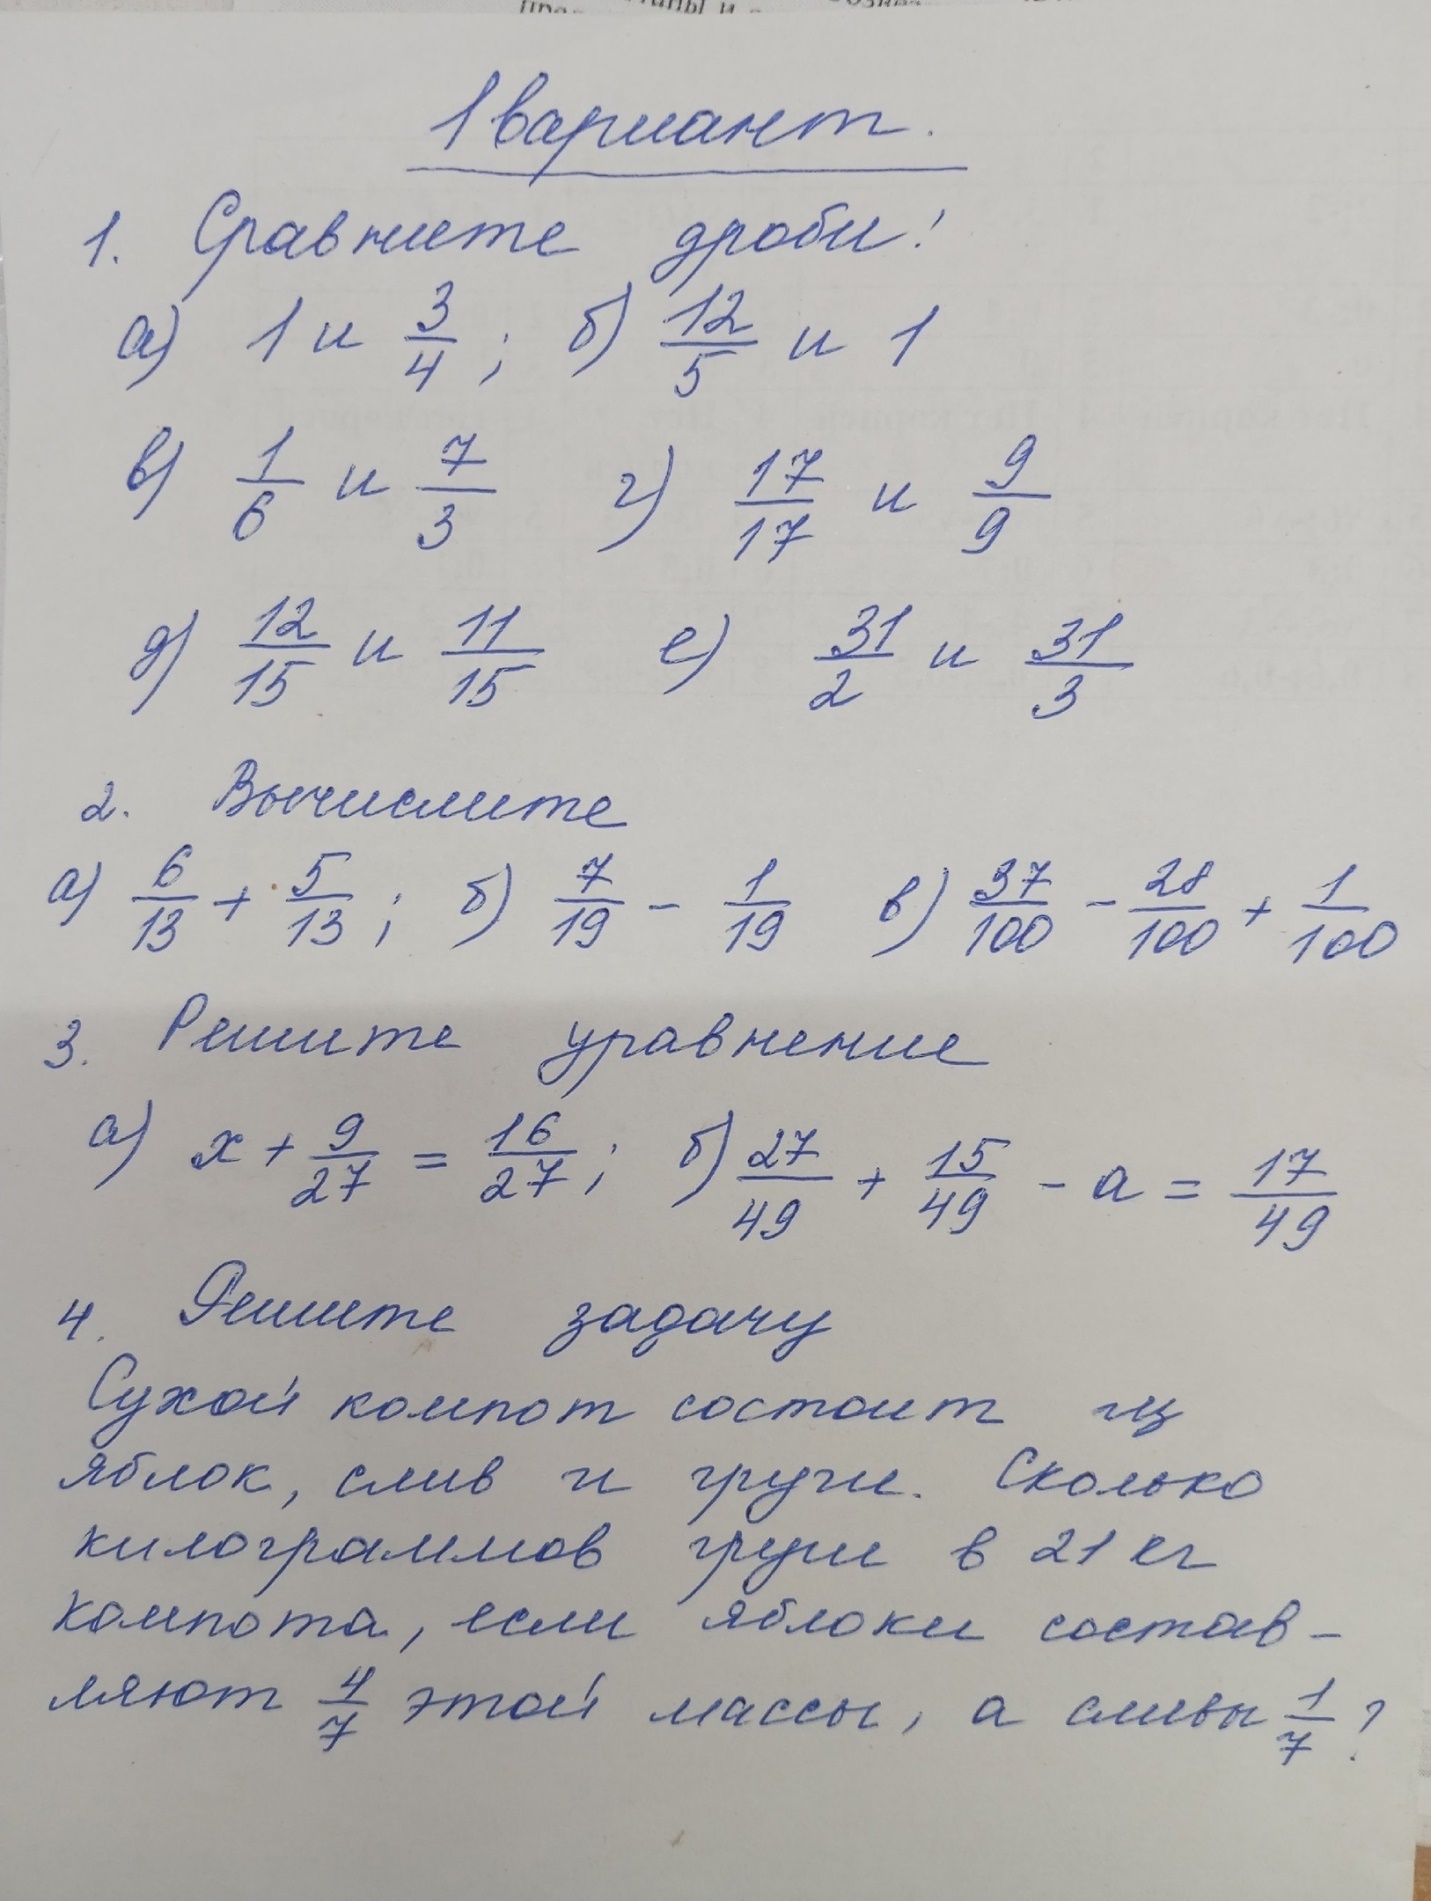 1 вариант.
1. Сравните дроби:
а) 1 и 3/4 ; б) 12/5 и 1
в) 1/6 и 7/3 г) 17/17 и 9/9
д) 12/15 и 11/15 е) 31/2 и 31/3
2. Вычислите
а) 6/13 + 5/13 ; б) 7/19 - 1/19 в) 37/100 - 28/100 + 1/100
3. Решите уравнение
а) x + 9/27 = 16/27 ; б) 27/49 + 15/49 - a = 17/49
4. Решите задачу
Сухой компот состоит из
яблок, слив и груш. Сколько
килограммов груш в 21 кг
компота, если яблоки состав-
ляют 4/7 этой массы, а сливы 1/7 ?